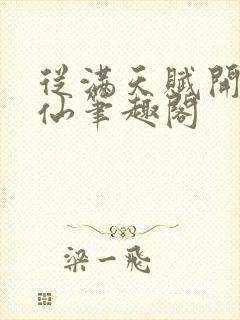 從滿天賦開
仙筆趣閣
梁一飛